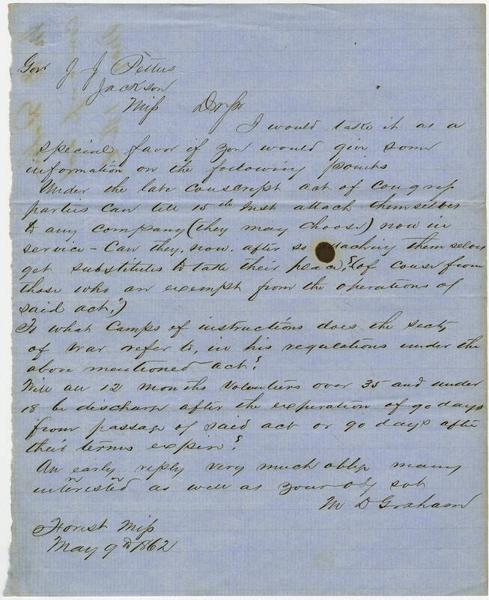 Gov J J Pettus
Jackson
Miss Dr Sir
I would take it as a
special favor if you would give some
information on the following points
Under the late conscript act of congress
parties can till 15th Inst attach themselves
to any company (they may choose) now in
service - Can they, now, after so attaching themselves
get substitutes to take their place? (of course from
those who are exempt from the operations of
said act,")
To what Camps of instructions does the secty
of War refer to, in his regulations under the
above mentioned act?
Will all 12 months Volunteers over 35 and under
18 be discharge after the expiration of 90 days
from passage of said act or 90 days after
their terms expire?
An early reply very much oblige many
interested as well as your Ob svt
M D Graham
Forest Miss
May 9th 1862